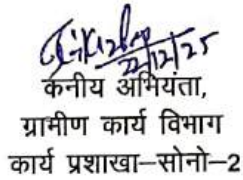 22/12/25
कनीय अभियंता,
ग्रामीण कार्य विभाग
कार्य प्रशाखा–सोनो–2